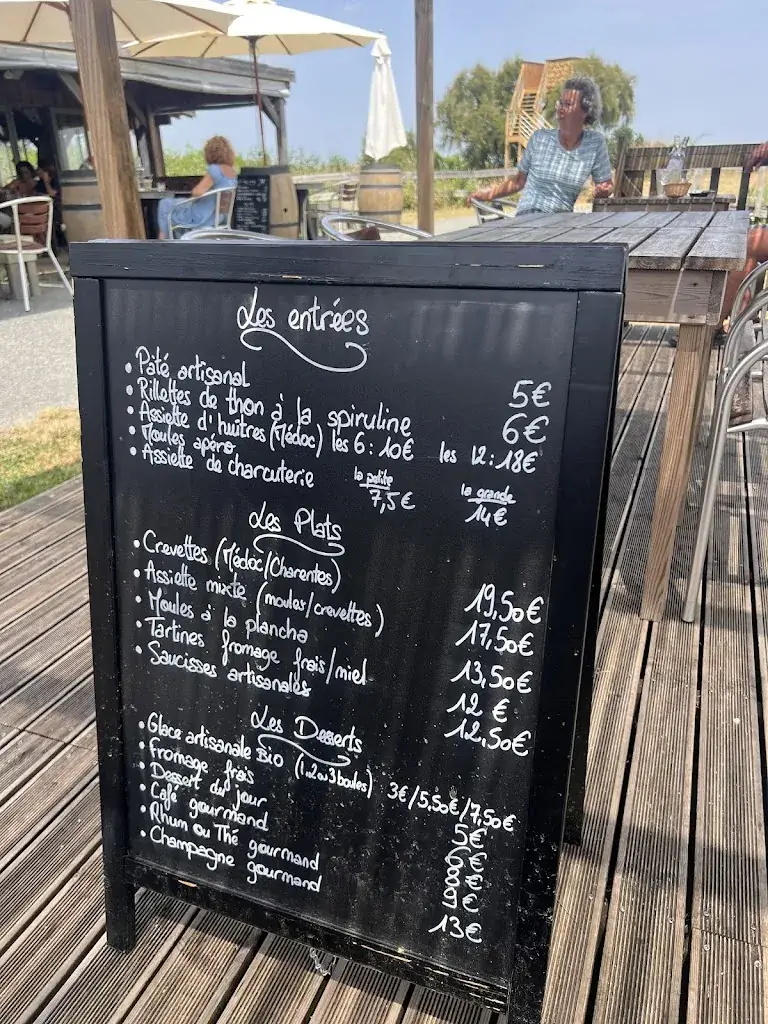 Les entrées
• Pâté artisanal 5€
• Rillettes de thon à la spiruline 6€
• Assiette d'huîtres (Médoc) les 6 : 10€ les 12 : 18€
• Moules apéro
• Assiette de charcuterie la petite 7,5€ la grande 14€
Les Plats
• Crevettes (Médoc/Charentes) 19,50€
• Assiette mixte (moules/crevettes) 17,50€
• Moules à la plancha 13,50€
• Tartines fromage frais/miel 12 €
• Saucisses artisanales 12,50€
Les Desserts
• Glace artisanale Bio (1, 2 ou 3 boules) 3€/5.50€/7,50€
• Fromage frais 5€
• Dessert du jour 6€
• Café gourmand 8€
• Rhum ou Thé gourmand 9€
• Champagne gourmand 13€